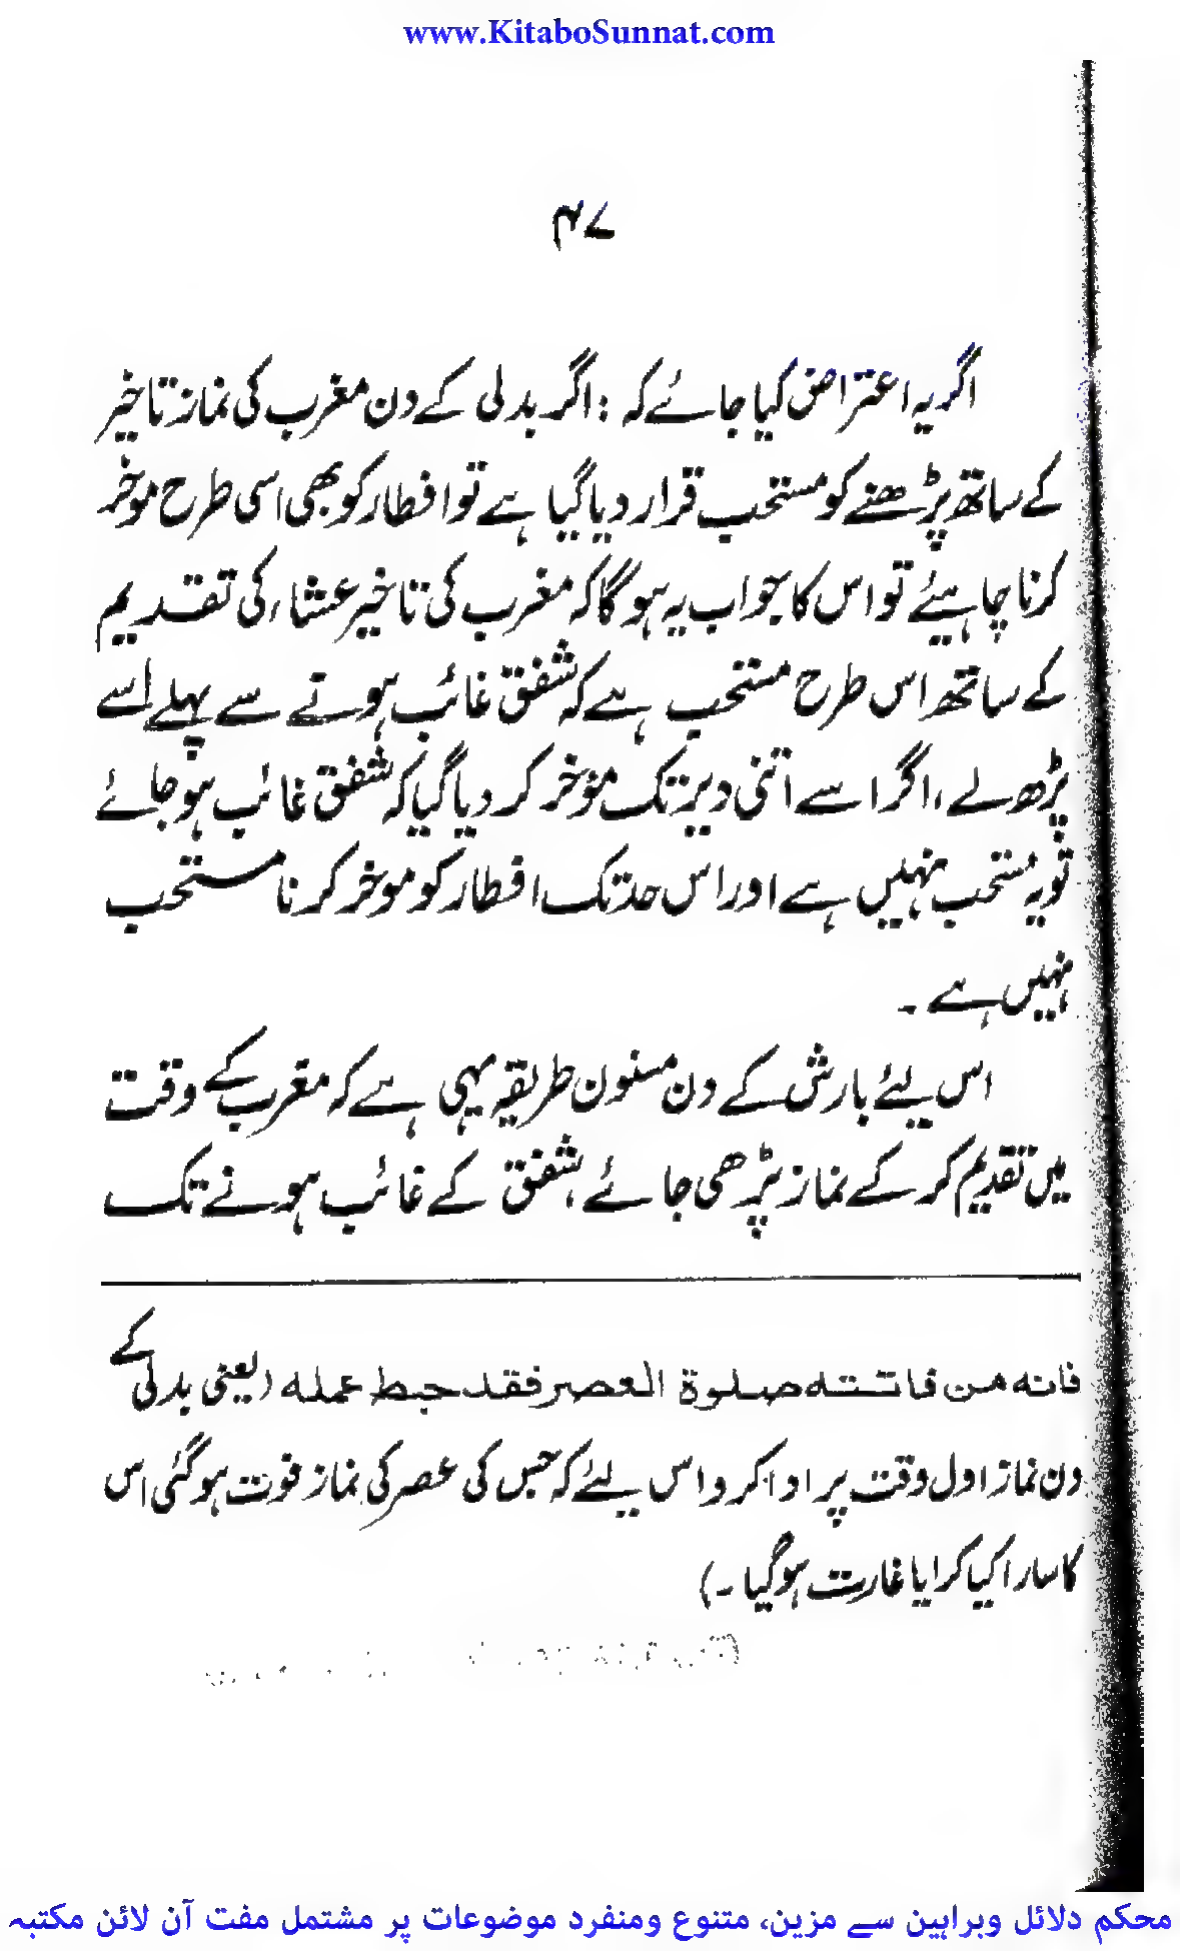 www.KitaboSunnat.com
۴۷
اگر یہ اعتراض کیا جائے کہ : اگر بدلی کے دن مغرب کی نماز تاخیر
کے ساتھ پڑھنے کو مستحب قرار دیا گیا ہے تو افطار کو بھی اسی طرح موخر
کرنا چاہیئے تو اس کا جواب یہ ہو گا کہ مغرب کی تاخیر عشاء کی تقدیم
کے ساتھ اس طرح مستحب ہے کہ شفق غائب ہونے سے پہلے اسے
پڑھ لے ، اگر اسے اتنی دیر تک مؤخر کر دیا گیا کہ شفق غائب ہو جائے
تو یہ مستحب نہیں ہے اور اس حد تک افطار کو موخر کرنا مستحب
نہیں ہے ۔
اس لیئے بارش کے دن مسنون طریقہ یہی ہے کہ مغرب کے وقت
میں تقدیم کر کے نماز پڑھی جائے ، شفق کے غائب ہونے تک
فانه من فاتته صلوة العصر فقد حبط عمله (یعنی بدلی کے
دن نماز اول وقت پر ادا کرو اس لیئے کہ جس کی عصر کی نماز فوت ہو گئی اس
کا سارا کیا کرایا غارت ہو گیا ۔)
محکم دلائل وبراہین سے مزین، متنوع ومنفرد موضوعات پر مشتمل مفت آن لائن مکتبہ